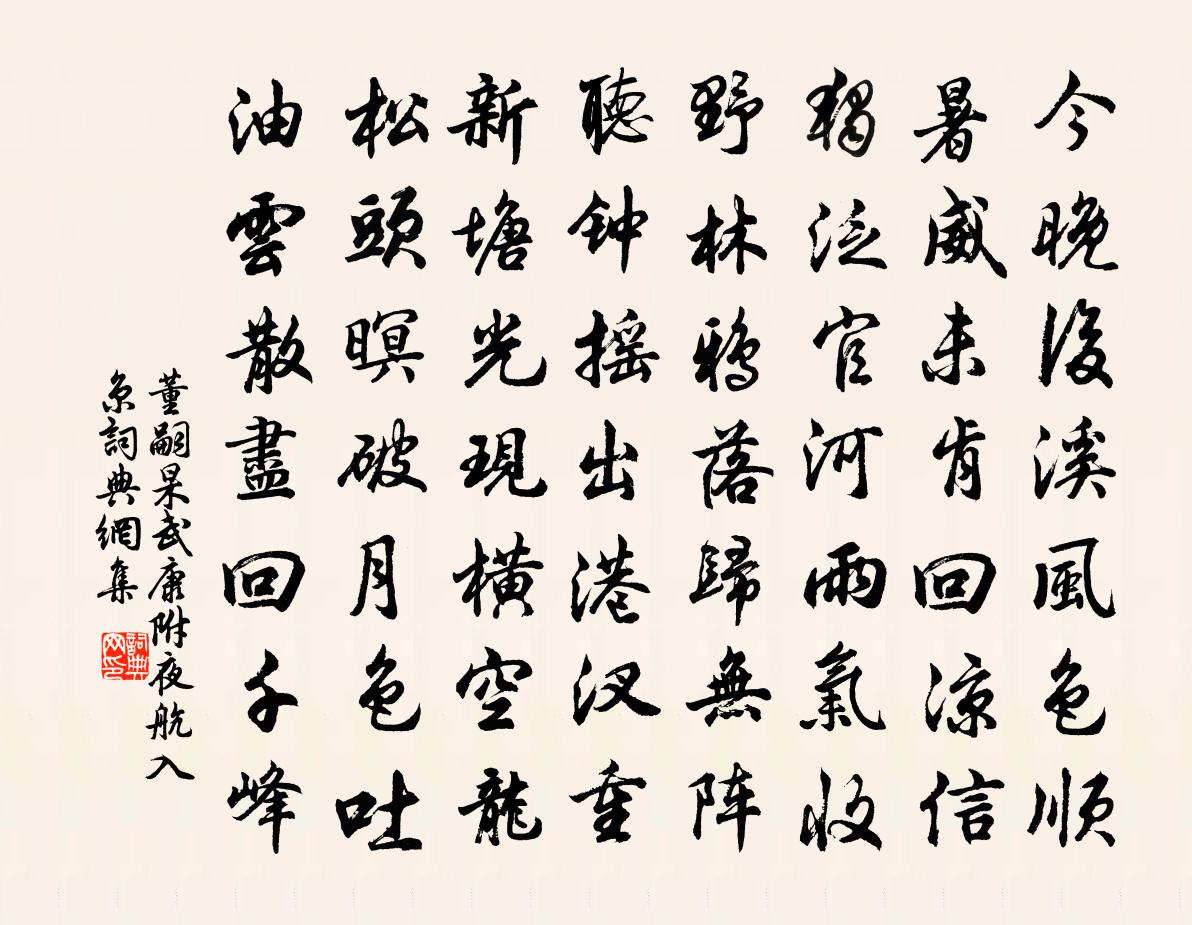 今晚後溪風色順
暑威未肯回涼信
獨泛官河雨氣收
野林鴉落歸無陣
聽钟摇出港汊重
新塘光現橫空龍
松頭暝破月色吐
油雲散盡回千峰
董嗣杲武康附夜航入
京詞典網集
詞典网印